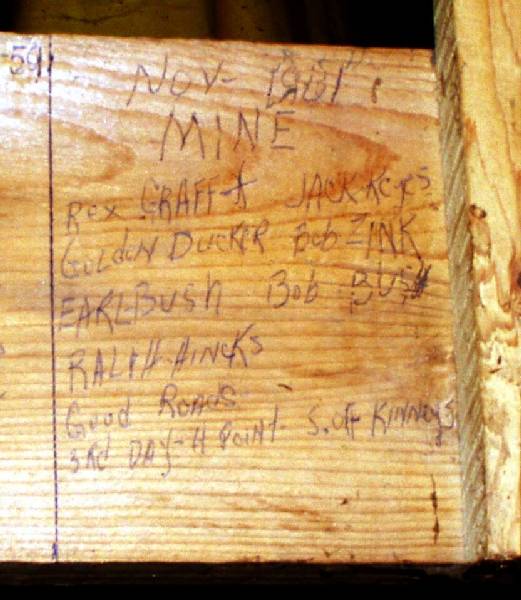 59
NOV- 1981
MINE
REX GRAFF & JACK KEYES
GOLDEN DUCKER BOB ZINK
EARL BUSH BOB BUSH
RALPH HINCKS
GOOD ROADS
3RD DAY-4 POINT- S. OFF KINNEYS